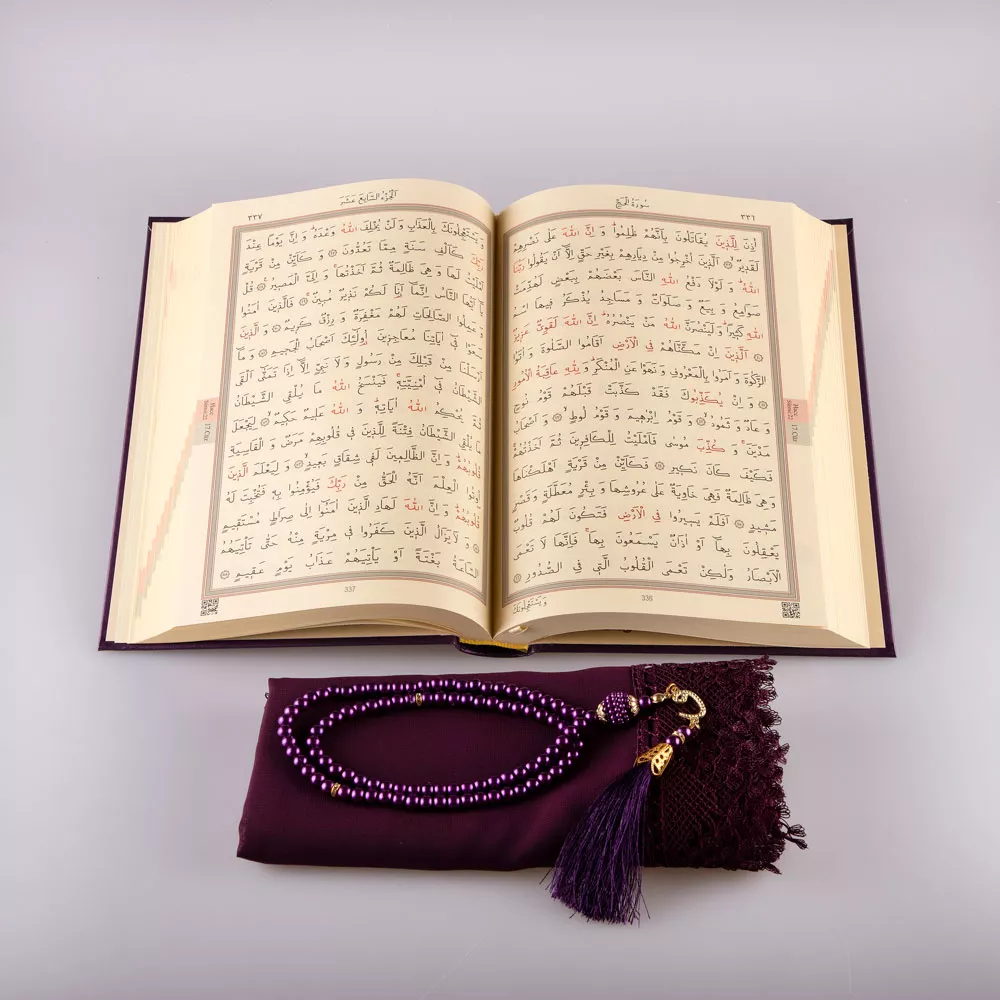 سُورَةُ الْحَجِّ
٣٣٦
اُذِنَ لِلَّذِينَ يُقَاتَلُونَ بِاَنَّهُمْ ظُلِمُوا وَ اِنَّ اللهَ عَلَى نَصْرِهِمْ
لَقَدِيرٌ ۞ اَلَّذِينَ اُخْرِجُوا مِنْ دِيَارِهِمْ بِغَيْرِ حَقٍّ اِلَّا اَنْ يَقُولُوا رَبُّنَا
اللهُ وَ لَوْلَا دَفْعُ اللهِ النَّاسَ بَعْضَهُمْ بِبَعْضٍ لَهُدِّمَتْ
صَوَامِعُ وَ بِيَعٌ وَ صَلَوَاتٌ وَ مَسَاجِدُ يُذْكَرُ فِيهَا اسْمُ
اللهِ كَثِيرًا وَ لَيَنْصُرَنَّ اللهُ مَنْ يَنْصُرُهُ اِنَّ اللهَ لَقَوِيٌّ عَزِيزٌ
۞ اَلَّذِينَ اِنْ مَكَّنَّاهُمْ فِي الْاَرْضِ اَقَامُوا الصَّلٰوةَ وَ اٰتَوُا
الزَّكٰوةَ وَ اَمَرُوا بِالْمَعْرُوفِ وَ نَهَوْا عَنِ الْمُنْكَرِ وَ لِلهِ عَاقِبَةُ الْاُمُورِ
۞ وَ اِنْ يُكَذِّبُوكَ فَقَدْ كَذَّبَتْ قَبْلَهُمْ قَوْمُ نُوحٍ
وَ عَادٌ وَ ثَمُودُ ۞ وَ قَوْمُ اِبْرٰهِيمَ وَ قَوْمُ لُوطٍ ۞ وَ اَصْحَابُ
مَدْيَنَ وَ كُذِّبَ مُوسٰى فَاَمْلَيْتُ لِلْكَافِرِينَ ثُمَّ اَخَذْتُهُمْ
فَكَيْفَ كَانَ نَكِيرِ ۞ فَكَاَيِّنْ مِنْ قَرْيَةٍ اَهْلَكْنَاهَا
وَ هِيَ ظَالِمَةٌ فَهِيَ خَاوِيَةٌ عَلٰى عُرُوشِهَا وَ بِئْرٍ مُعَطَّلَةٍ وَ قَصْرٍ
مَشِيدٍ ۞ اَفَلَمْ يَسِيرُوا فِي الْاَرْضِ فَتَكُونَ لَهُمْ قُلُوبٌ
يَعْقِلُونَ بِهَا اَوْ اٰذَانٌ يَسْمَعُونَ بِهَا فَاِنَّهَا لَا تَعْمَى
الْاَبْصَارُ وَلٰكِنْ تَعْمَى الْقُلُوبُ الَّتِي فِي الصُّدُورِ ۞
وَيَسْتَعْجِلُونَكَ
336
Hac
Sûresi 22
17.Cüz
اَلْجُزْءُ السَّابِعَ عَشَرَ
٣٣٧
وَ يَسْتَعْجِلُونَكَ بِالْعَذَابِ وَ لَنْ يُخْلِفَ اللهُ وَعْدَهُ وَ اِنَّ يَوْمًا عِنْدَ
رَبِّكَ كَاَلْفِ سَنَةٍ مِمَّا تَعُدُّونَ ۞ وَ كَاَيِّنْ مِنْ قَرْيَةٍ
اَمْلَيْتُ لَهَا وَ هِيَ ظَالِمَةٌ ثُمَّ اَخَذْتُهَا وَ اِلَيَّ الْمَصِيرُ ۞ قُلْ
يَا اَيُّهَا النَّاسُ اِنَّمَا اَنَا لَكُمْ نَذِيرٌ مُبِينٌ ۞ فَالَّذِينَ اٰمَنُوا
وَ عَمِلُوا الصَّالِحَاتِ لَهُمْ مَغْفِرَةٌ وَ رِزْقٌ كَرِيمٌ ۞ وَ الَّذِينَ
سَعَوْا فِي اٰيَاتِنَا مُعَاجِزِينَ اُولٰئِكَ اَصْحَابُ الْجَحِيمِ ۞ وَ مَا
اَرْسَلْنَا مِنْ قَبْلِكَ مِنْ رَسُولٍ وَ لَا نَبِيٍّ اِلَّا اِذَا تَمَنّٰى اَلْقَى
الشَّيْطَانُ فِي اُمْنِيَّتِهِ فَيَنْسَخُ اللهُ مَا يُلْقِي الشَّيْطَانُ
ثُمَّ يُحْكِمُ اللهُ اٰيَاتِهِ وَ اللهُ عَلِيمٌ حَكِيمٌ ۞ لِيَجْعَلَ
مَا يُلْقِي الشَّيْطَانُ فِتْنَةً لِلَّذِينَ فِي قُلُوبِهِمْ مَرَضٌ وَ الْقَاسِيَةِ
قُلُوبُهُمْ وَ اِنَّ الظَّالِمِينَ لَفِي شِقَاقٍ بَعِيدٍ ۞ وَ لِيَعْلَمَ الَّذِينَ
اُوتُوا الْعِلْمَ اَنَّهُ الْحَقُّ مِنْ رَبِّكَ فَيُؤْمِنُوا بِهِ فَتُخْبِتَ لَهُ
قُلُوبُهُمْ وَ اِنَّ اللهَ لَهَادِ الَّذِينَ اٰمَنُوا اِلٰى صِرَاطٍ مُسْتَقِيمٍ
۞ وَ لَا يَزَالُ الَّذِينَ كَفَرُوا فِي مِرْيَةٍ مِنْهُ حَتّٰى تَأْتِيَهُمُ
السَّاعَةُ بَغْتَةً اَوْ يَأْتِيَهُمْ عَذَابُ يَوْمٍ عَقِيمٍ ۞
337
Hac
Sûresi 22
17.Cüz